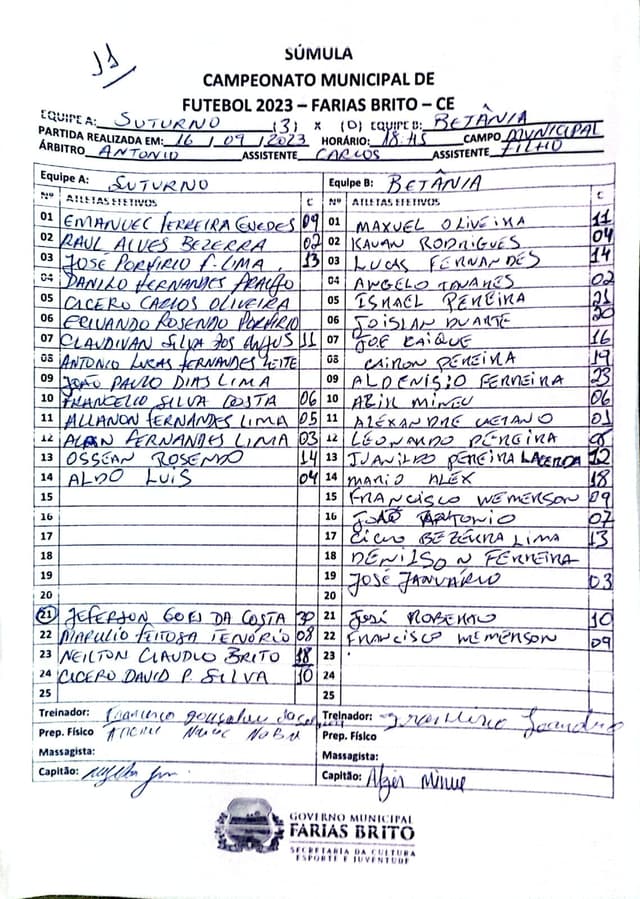 J1
SÚMULA
CAMPEONATO MUNICIPAL DE
FUTEBOL 2023 – FARIAS BRITO – CE
EQUIPE A: SUTURNO (3) X (0) EQUIPE B: BETÂNIA
PARTIDA REALIZADA EM: 16 / 09 / 2023 HORÁRIO: 18:45 CAMPO MUNICIPAL
ÁRBITRO ANTONIO ASSISTENTE CARLOS ASSISTENTE FILHO
Equipe A: SUTURNO Equipe B: BETÂNIA
Nº ATLETAS EFETIVOS C Nº ATLETAS EFETIVOS C
01 EMANUEL FERREIRA GUEDES 09 01 MAXUEL OLIVEIRA 11
02 RAUL ALVES BEZERRA 02 02 KAUAN RODRIGUES 04
03 JOSÉ PORFIRIO F. LIMA 13 03 LUCAS FERNANDES 14
04 DANILO FERNANDES ARAUJO 04 ANGELO TAVARES 02
05 CICERO CARLOS OLIVEIRA 05 ISMAEL PEREIRA 21
06 ERIVANDO ROSENDO PORFIRIO 06 JOISLAN DUARTE 20
07 CLAUDIVAN SILVA DOS ANJOS 11 07 JOE KAIQUE 16
08 ANTONIO LUCAS FERNANDES LEITE 08 CAIRON PEREIRA 19
09 JOÃO PAULO DIAS LIMA 09 ALDENISIO FERREIRA 23
10 FRANCELIO SILVA COSTA 06 10 06
11 ALLANON FERNANDES LIMA 05 11 ALEXANDRE CAETANO 01
12 ALAN FERNANDES LIMA 03 12 LEONARDO PEREIRA
13 OSSEAN ROSENDO 14 13 JUANILDO PEREIRA LACERDA 12
14 ALDO LUIS 04 14 MARIO ALEX 18
15 15 FRANCISCO WEMERSON 09
16 16 JOÃO ANTONIO 07
17 17 CICERO BEZERRA LIMA 13
18 18 DENILSON FERREIRA
19 19 JOSÉ JANUÁRIO 03
20 20
21 JEFERSON GOES DA COSTA 30 21 JOSÉ ROBERTO 10
22 MARULIO FEITOSA TENÓRIO 08 22 FRANCISCO WEMERSON 09
23 NEILTON CLAUDIO BRITO 18 23
24 CICERO DAVID P. SILVA 10 24
25 25
Treinador: Francisco Treinador:
Prep. Físico Prep. Físico
Massagista: Massagista:
Capitão: Capitão:
GOVERNO MUNICIPAL
FARIAS BRITO
SECRETARIA DA CULTURA
ESPORTE E JUVENTUDE